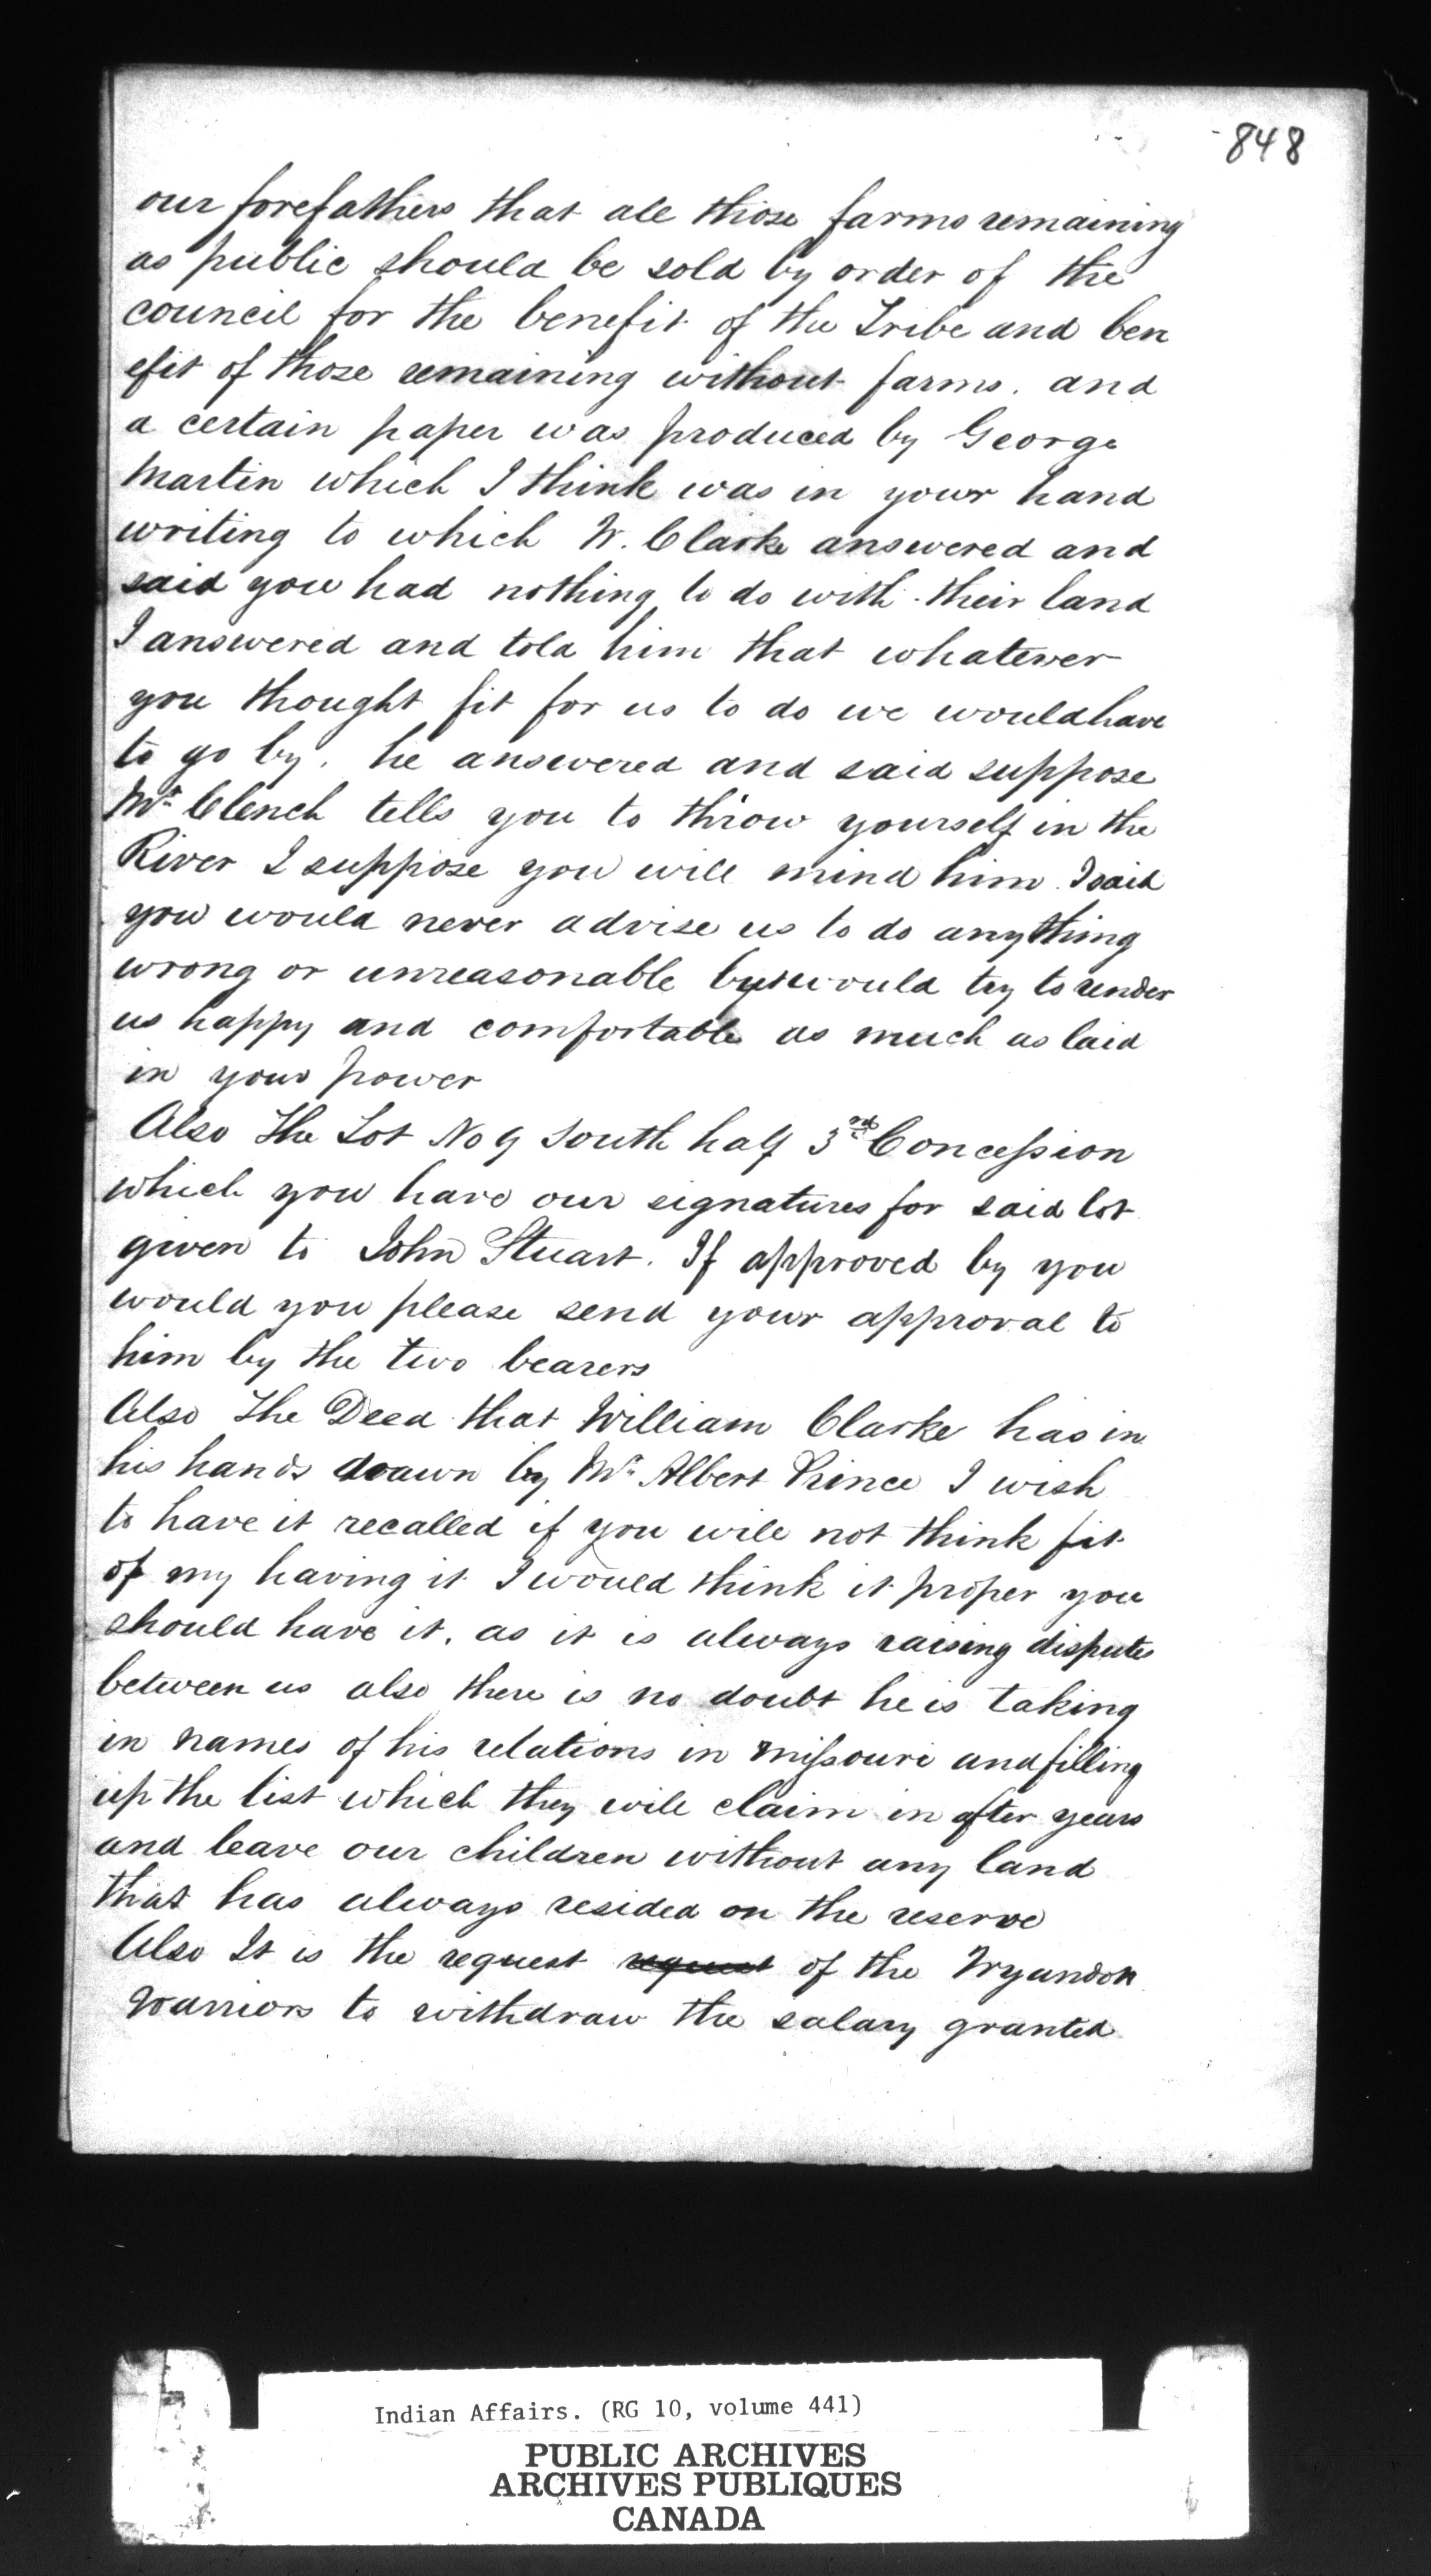 848
our forefathers that all those farms remaining
as public should be sold by order of the
council for the benefit of the Tribe and ben
efit of those remaining without farms. and
a certain paper was produced by George
Martin which I think was in your hand
writing to which W. Clarke answered and
said you had nothing to do with their land
I answered and told him that whatever
you thought fit for us to do we would have
to go by. he answered and said suppose
Mr Clench tells you to throw yourself in the
River I suppose you will mind him. I said
you would never advise us to do anything
wrong or unreasonable but would try to render
us happy and comfortable as much as laid
in your power
Also The Lot No 9 South half 3rd Concession
which you have our signatures for said lot
given to John Stuart. If approved by you
would you please send your approval to
him by the two bearers
Also The Deed that William Clarke has in
his hands drawn by Mr Albert Prince I wish
to have it recalled if you will not think fit
of my having it I would think it proper you
should have it, as it is always raising disputes
between us also there is no doubt he is taking
in names of his relations in Missouri and filling
up the list which they will claim in after years
and leave our children without any land
that has always resided on the reserve
Also It is the request request of the Wyandott
Warriors to withdraw the salary granted
Indian Affairs. (RG 10, volume 441)
PUBLIC ARCHIVES
ARCHIVES PUBLIQUES
CANADA